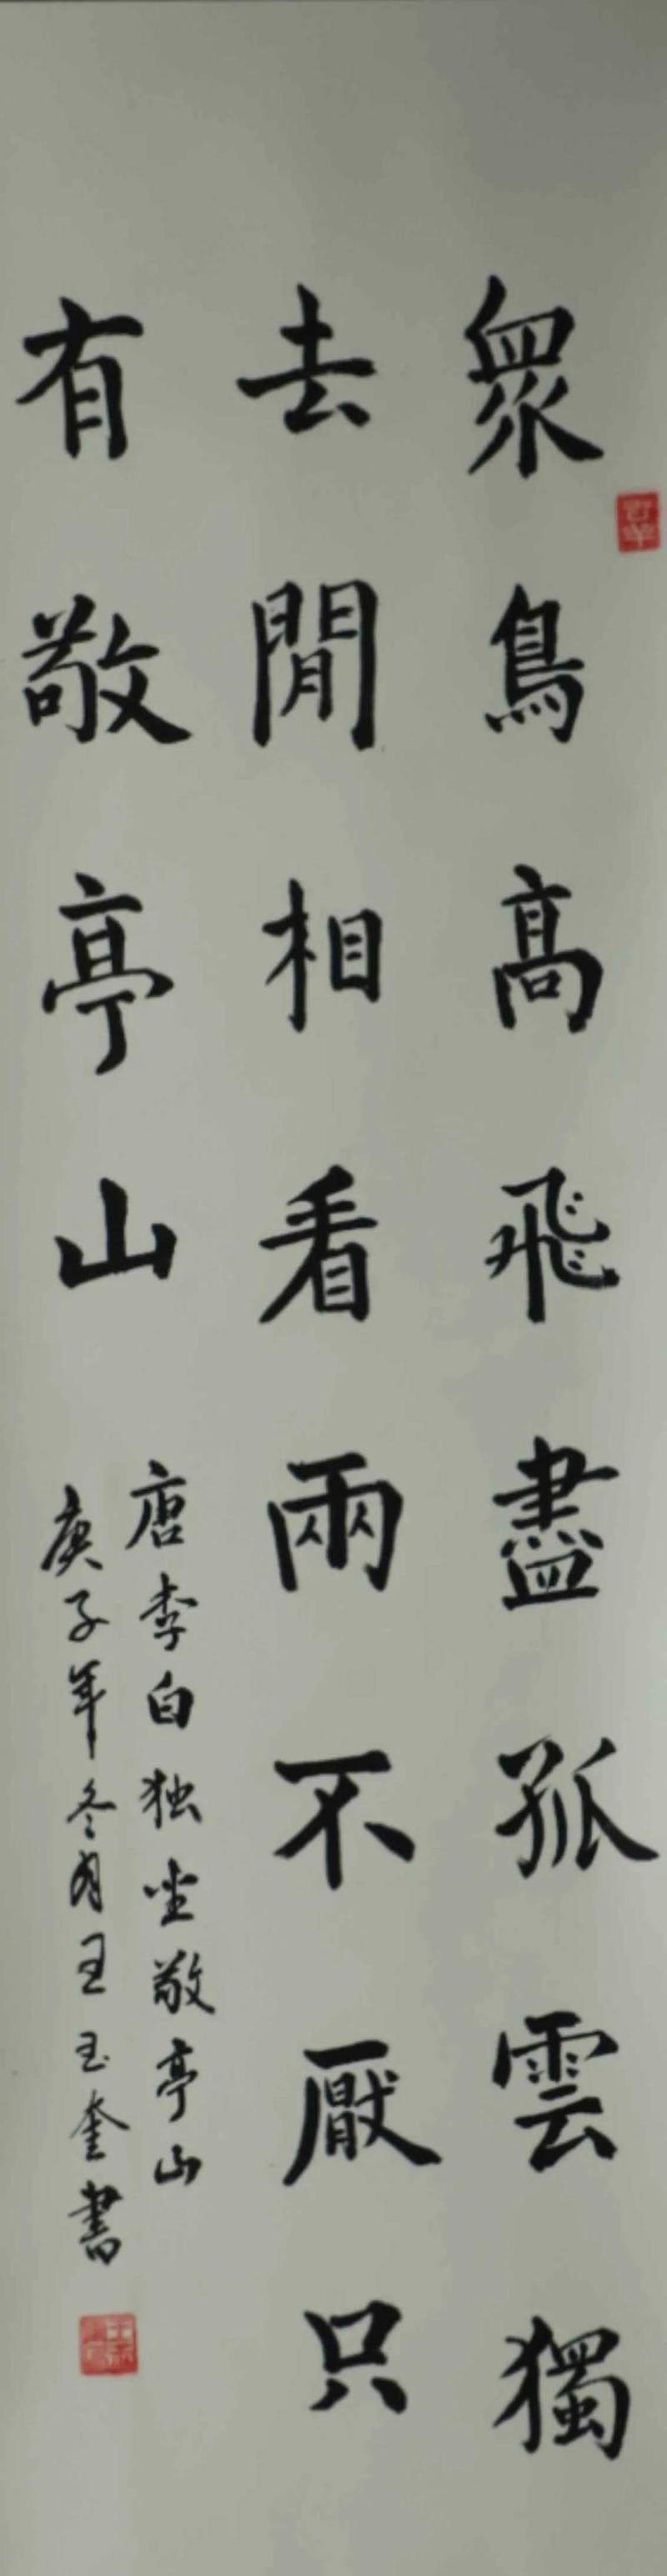 眾鳥高飛盡孤雲獨
去閒相看兩不厭只
有敬亭山
唐李白独坐敬亭山
庚子年冬月王玉奎書